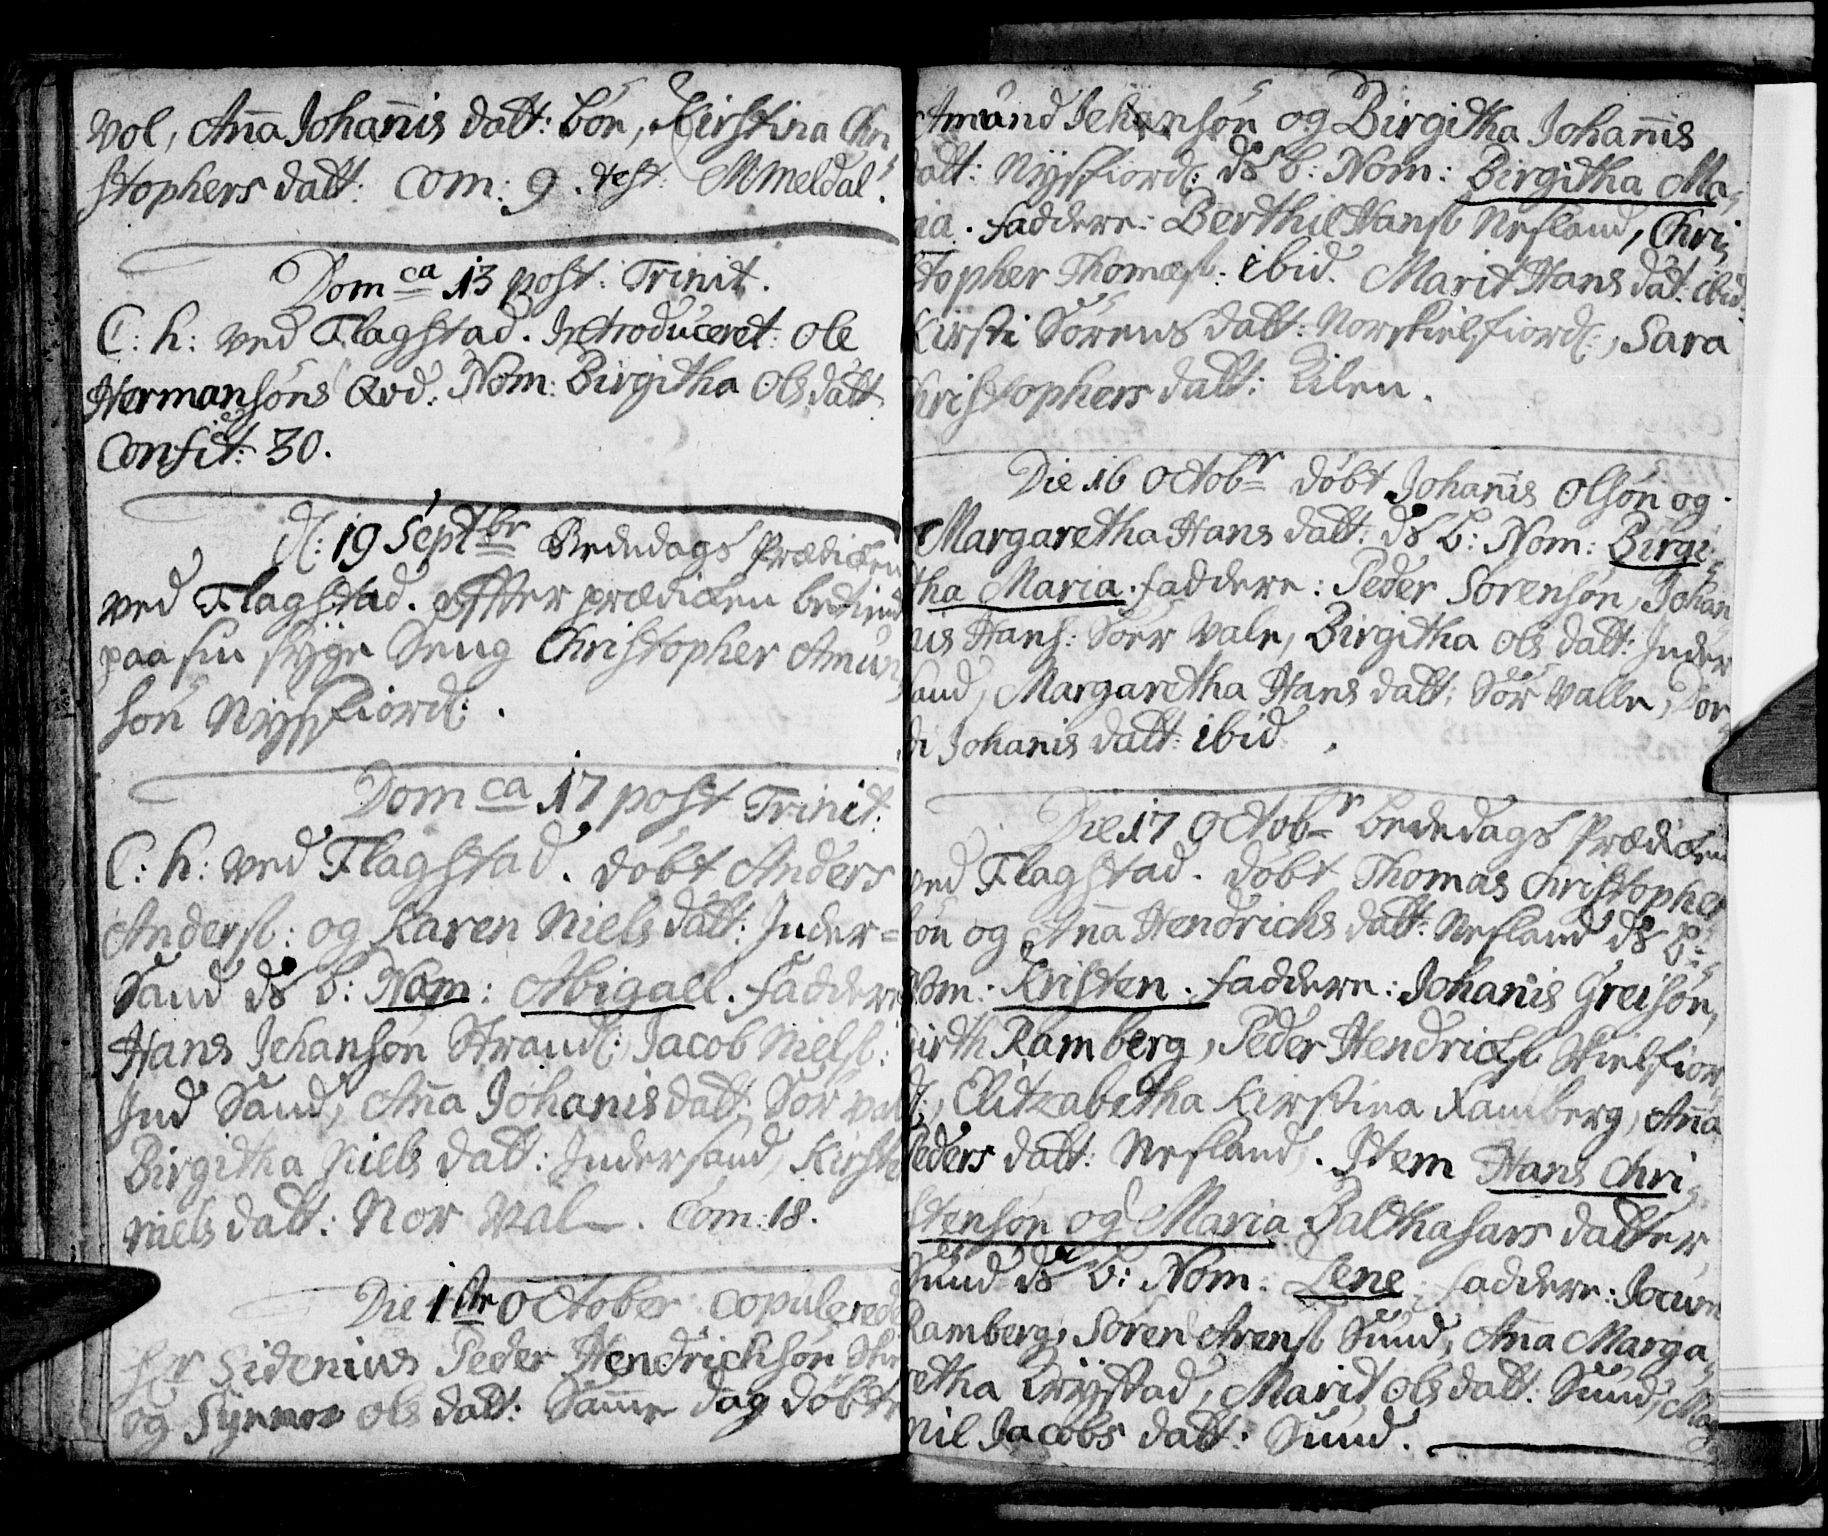 Vol, Aña Johañis datt: bön, Kirstina Chri
stophers datt: Com: 9. test: M: Meldal.
Dom ca 13 post: Trinit.
C: h: ved Flagstad. Introduceret: Ole
Hermansöns Qvd. Nom: Birgitha Ols datt
Confit: 30.
d: 19 Septbr Bededags Prædiken
ved Flagstad. efter prædiken betient
paa sin syge Seng Christopher Amun
sön Nysfiord:.
Dom ca 17 post Trinit:
C: h: ved Flagstad. döbt Anders
Andersl: og Karen Niels datt: Inder=
Sand ds b: Nom: Abigael. Faddere
Hans Jehansön Strand: Jacob Nielsl:
Ind Sand, Aña Johanis datt: Sör val
Birgitha Niels datt: Indersand, Kirste
niels datt: Nor Val. Com: 18.
Die 1ste October copulerede
Hr Sidenius Peder Hendrichsön
og Synnov Ols datt: Samme dag döbt
Amund Jehansön og Birgitha Johañis
datt: Nysfiord: ds b: Nom: Birgitha Ma,
ria. Faddere: Berthil Hansl Nesland, Chri,
stopher Thomæsl. ibid. Marit Hans dat: ibid
Kirsti Sörens datt: Norskielfiord:, Sara
Christophers datt: Eilen.
Die 16 Octobr döbt Johañis Olsön og
Margaretha Hans datt: ds b: Nom: Birgi,
tha Maria. Faddere: Peder Sörensön, Johan
nis Hans: Soer Vale, Birgitha Ols datt: Inder
sand, Margaretha Hans datt: Sör Valle, Dor,
di Johañis datt: ibid.
Die 17 Octobr bededags Prædiken
ved Flagstad. döbt Thomas Christopher
sön og Aña Hendrichs datt: Nesland ds b:
Nom: Kristen. Faddere: Johanis Greisön,
Girth Ramberg, Peder Hendrichsl Skielfior,
d:, Elitzabetha Kirstina Ramberg, Aña
Peders datt: Nesland. Item Hans Chri,
stensön og Maria Balthasars datter,
Sund ds b: Nom: Lene. Faddere: Jocum
Ramberg, Sören Arensl Sund, Aña Marga,
retha Mystad, Marit Ols datt: Sund, Mag
nil Jacobs datt: Sund.